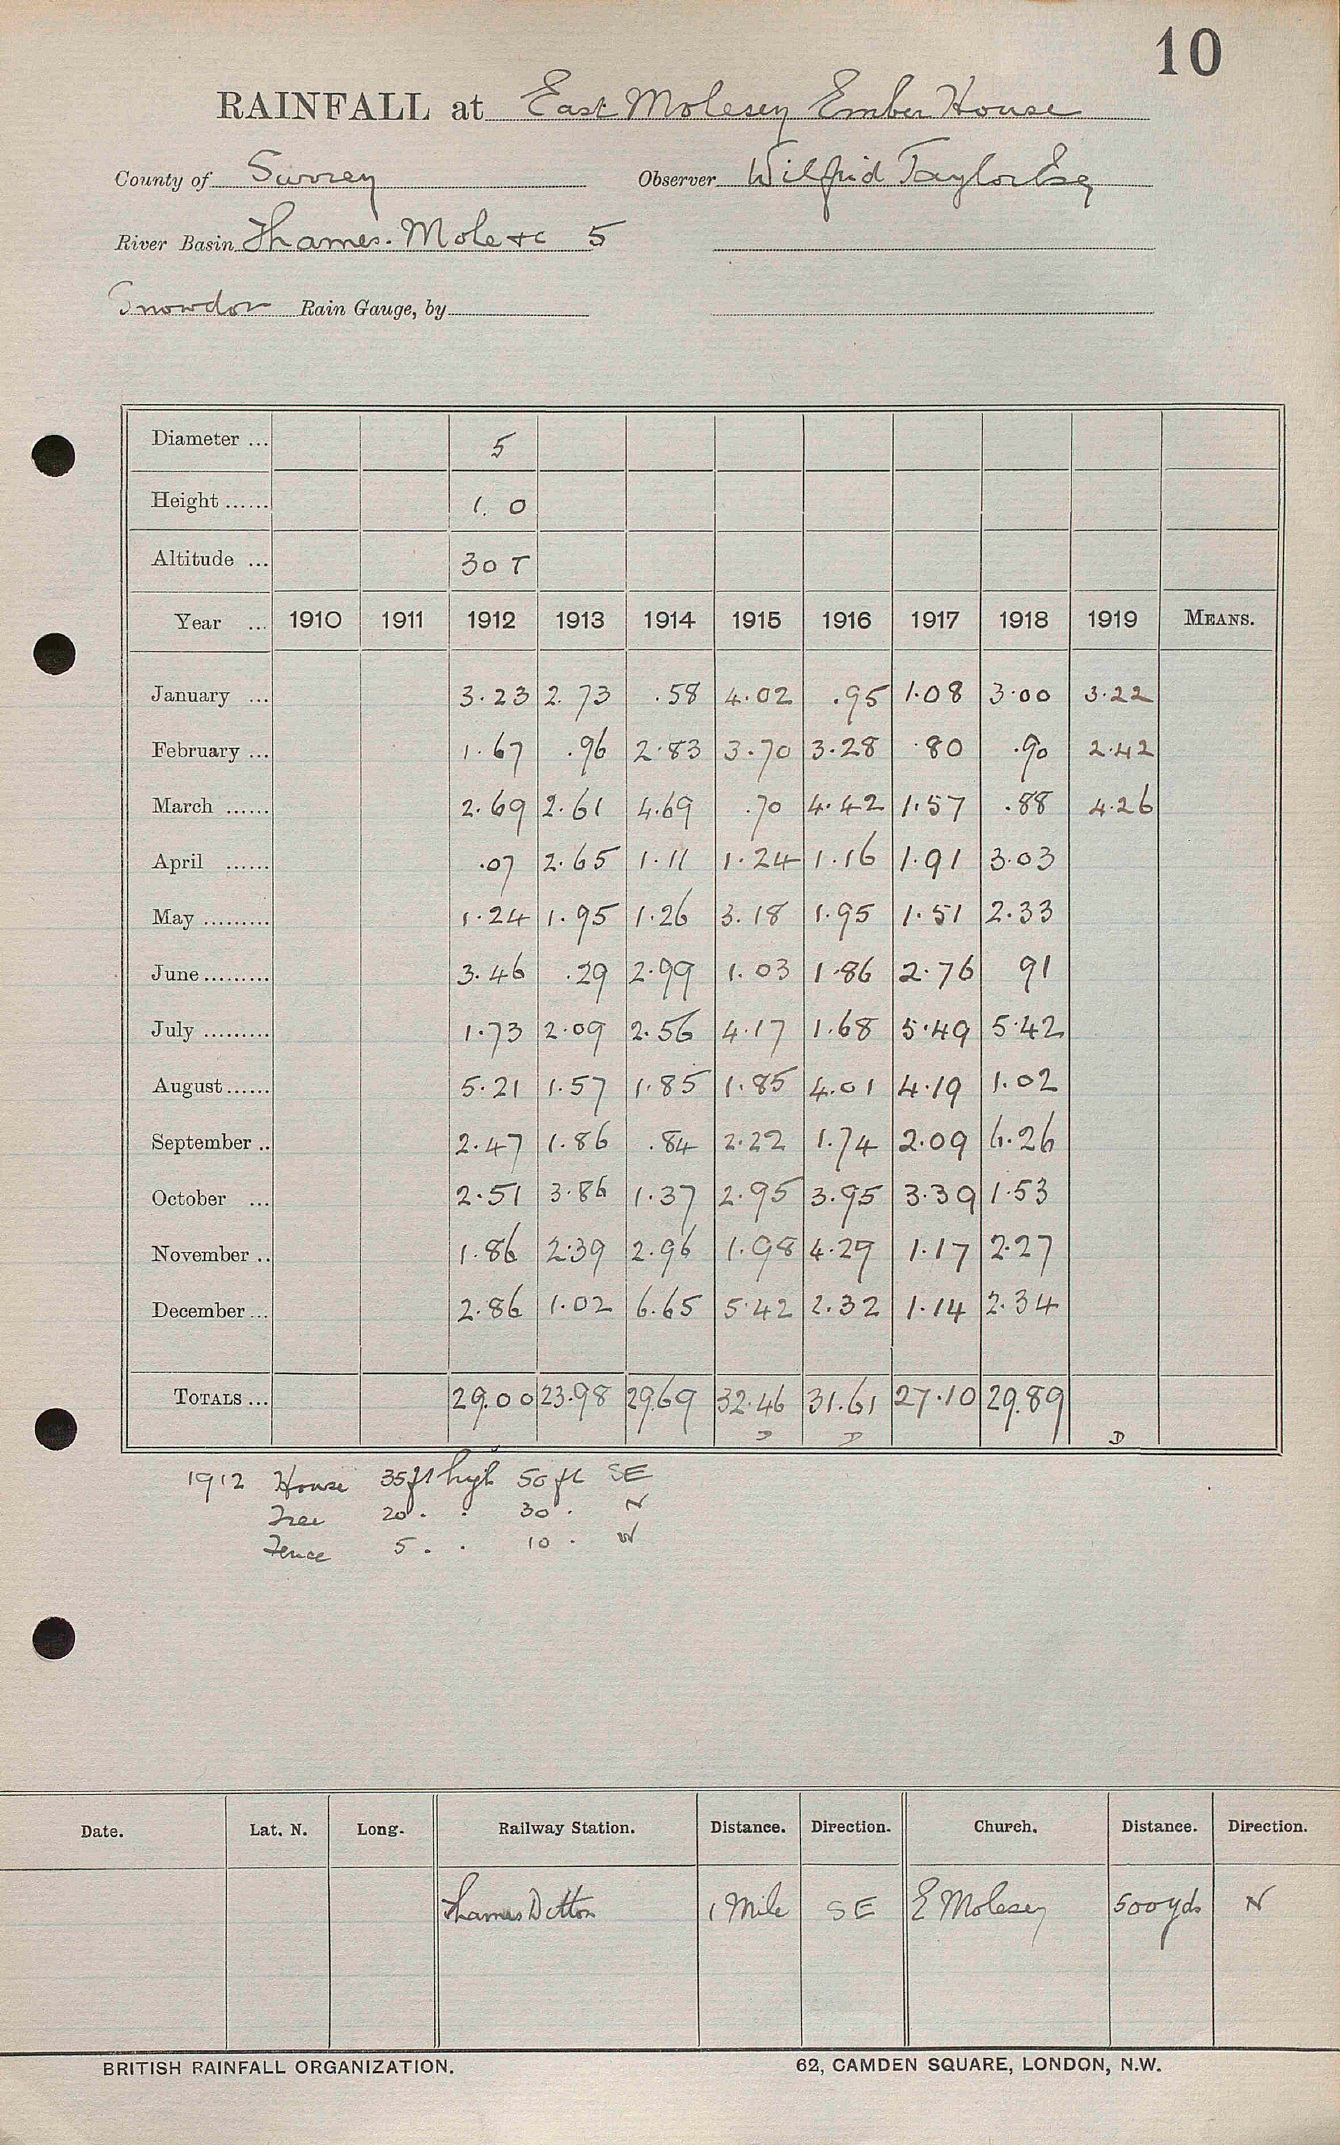 10
RAINFALL at East Molesey Ember House
County of Surrey Observer Wilfrid Taylor Esq
River Basin Thames. Mole &c 5
Snowdon Rain Gauge, by
Diameter ... 5
Height ...... 1. 0
Altitude ... 30 T
Year ... 1910 1911 1912 1913 1914 1915 1916 1917 1918 1919 MEANS.
January ... 3.23 2.73 .58 4.02 .95 1.08 3.00 3.22
February ... 1.67 .96 2.83 3.70 3.28 .80 .90 2.42
March ...... 2.69 2.61 4.69 .70 4.42 1.57 .88 4.26
April ...... .07 2.65 1.11 1.24 1.16 1.91 3.03
May ......... 1.24 1.95 1.26 3.18 1.95 1.51 2.33
June ......... 3.46 .29 2.99 1.03 1.86 2.76 91
July ......... 1.73 2.09 2.56 4.17 1.68 5.49 5.42
August ...... 5.21 1.57 1.85 1.85 4.01 4.19 1.02
September .. 2.47 1.86 .84 2.22 1.74 2.09 6.26
October ... 2.51 3.86 1.37 2.95 3.95 3.39 1.53
November .. 1.86 2.39 2.96 1.98 4.29 1.17 2.27
December ... 2.86 1.02 6.65 5.42 2.32 1.14 2.34
TOTALS ... 29.00 23.98 29.69 32.46 31.61 27.10 29.89
D D D
1912 House 35ft high 50 ft SE
Tree 20 . . 30 . N
Fence 5 . . 10 . W
Date. Lat. N. Long. Railway Station. Distance. Direction. Church. Distance. Direction.
Thames Ditton 1 Mile SE E Molesey 500 yds N
BRITISH RAINFALL ORGANIZATION. 62, CAMDEN SQUARE, LONDON, N.W.